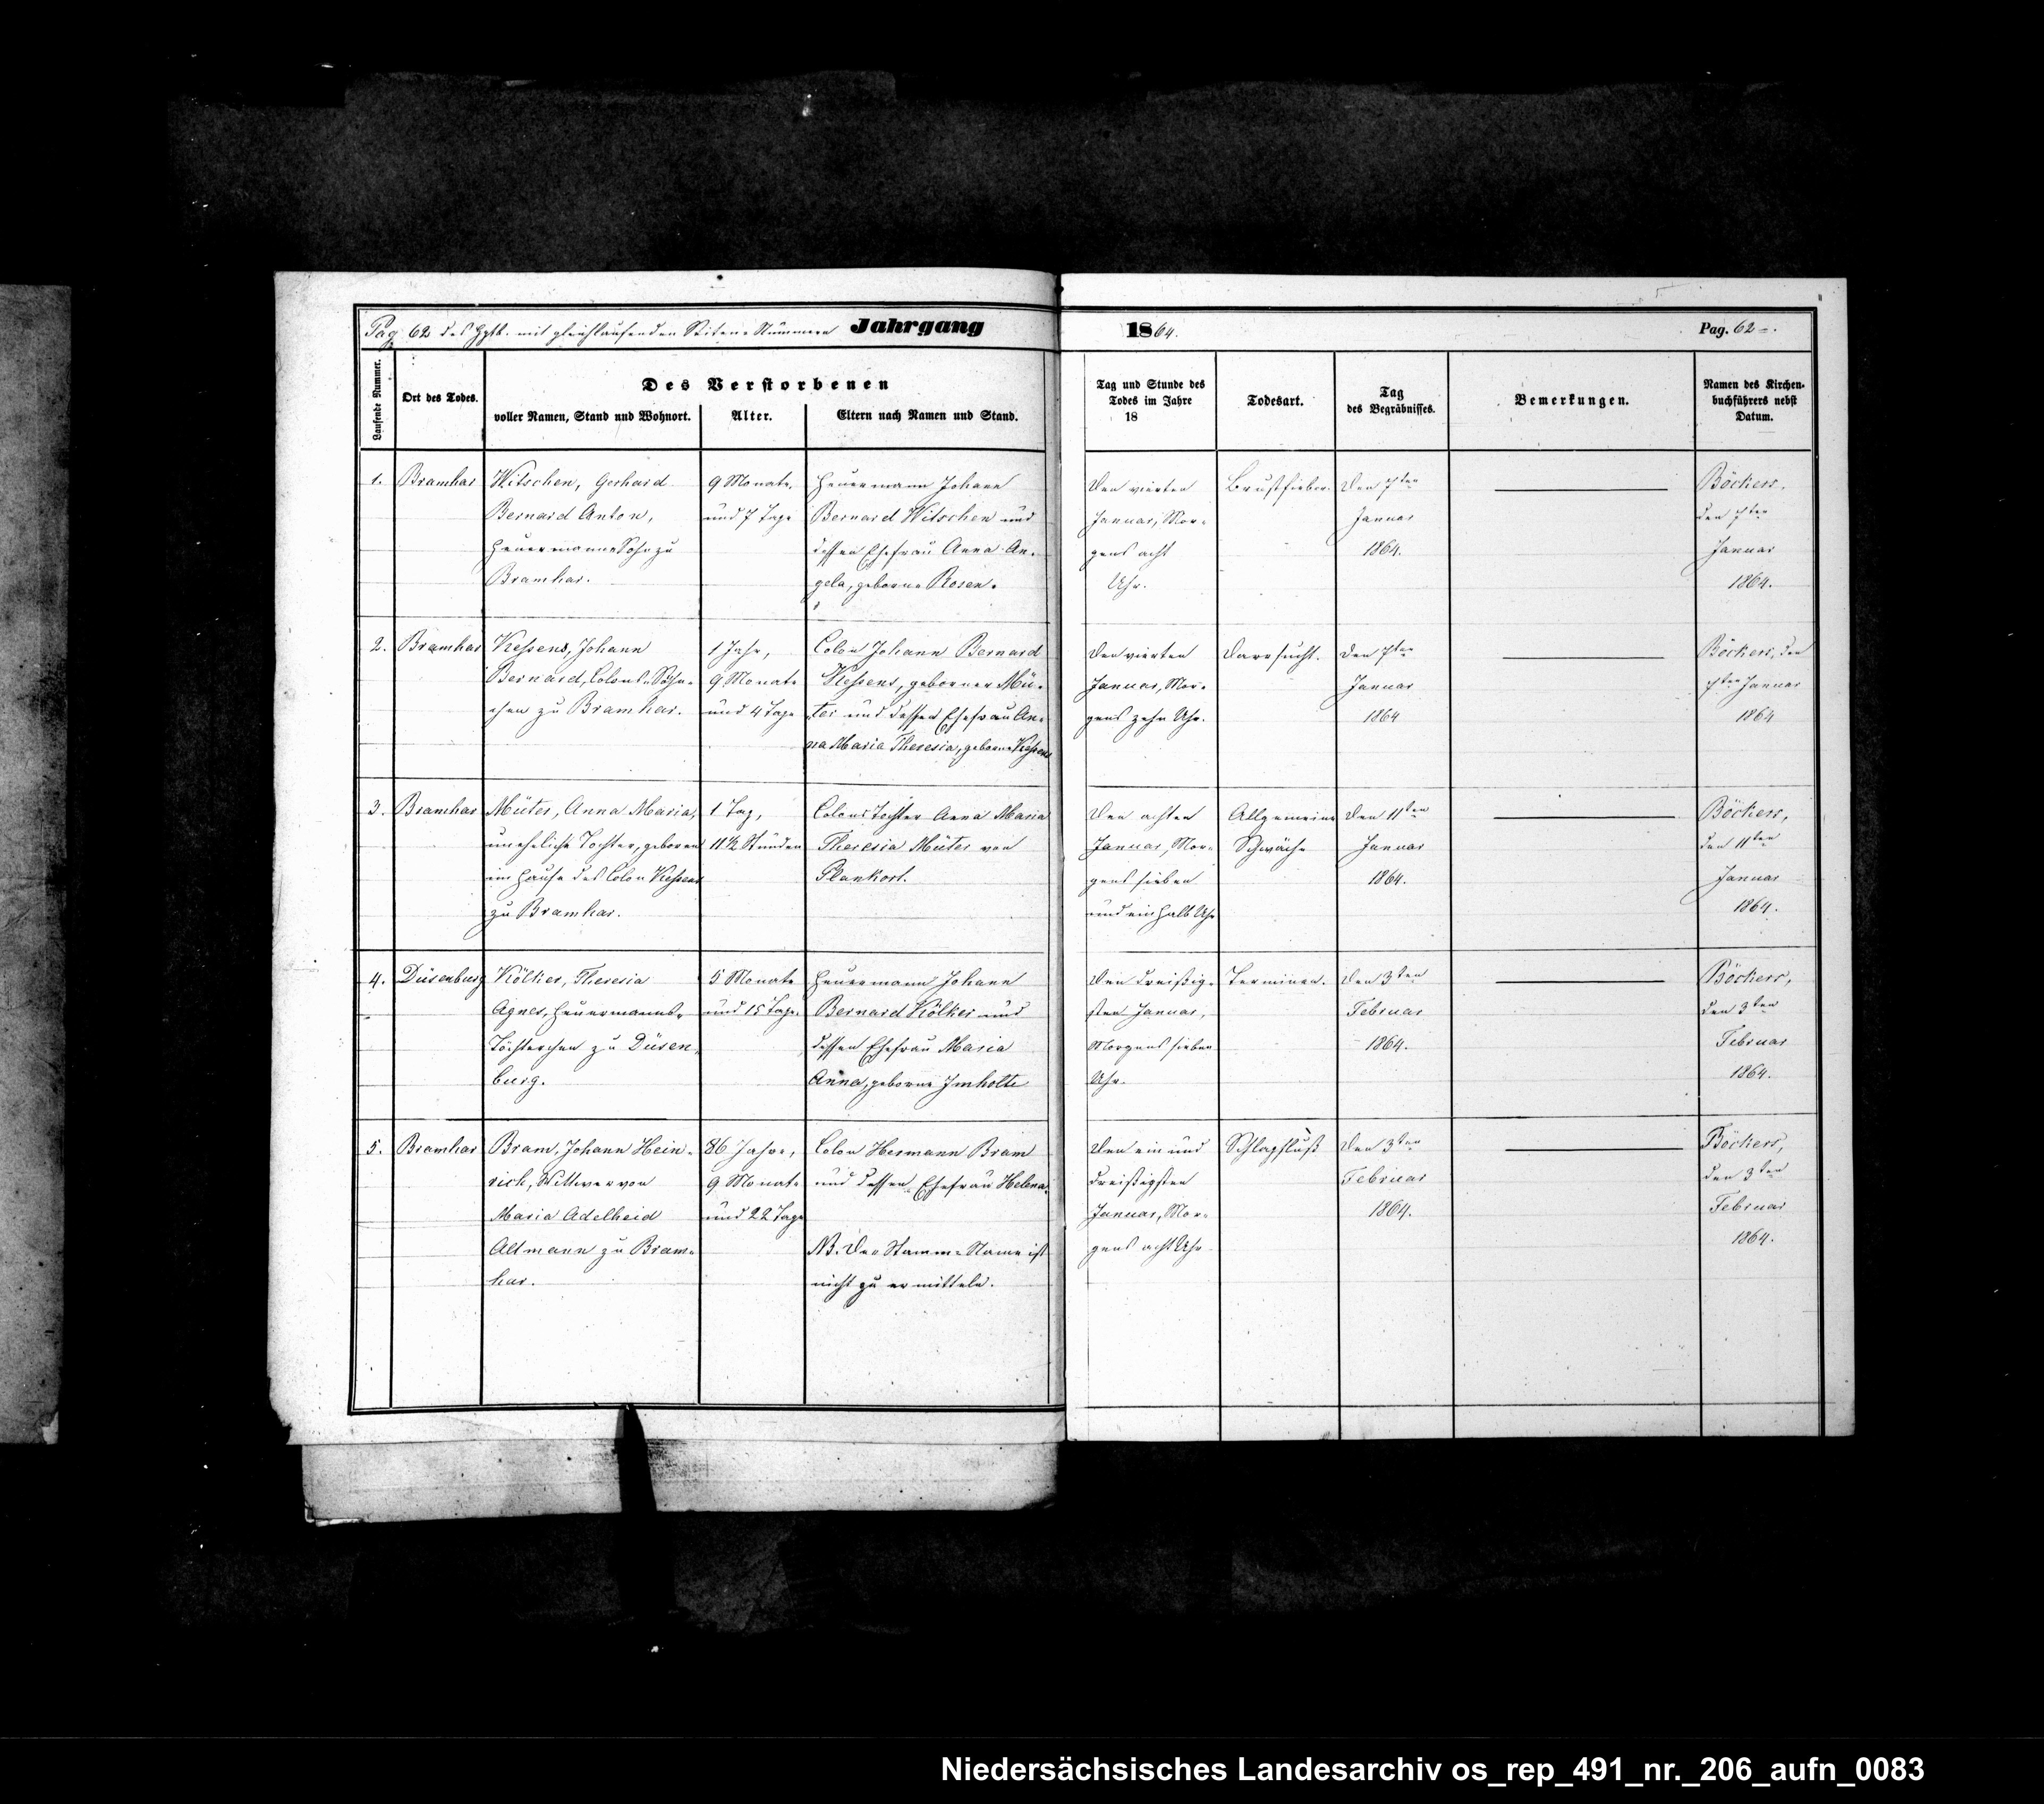 Pag 62 des Hptb. mit gleichlaufenden Seiten-Nummern Jahrgang 1864. Pag. 62
Laufende Nummer.
Ort des Todes.
Des Verstorbenen
voller Namen, Stand und Wohnort.
Alter.
Eltern nach Namen und Stand.
Tag und Stunde des
Todes im Jahre
18
Todesart.
Tag
des Begräbnisses.
Bemerkungen.
Namen des Kirchen-
buchführers nebst
Datum.
1.
Bramhar
Witschen, Gerhard
Bernard Anton,
Heuermanns Sohn zu
Bramhar.
9 Monate
und 7 Tage
Heuermann Johann
Bernard Witschen und
dessen Ehefrau Anna An-
gela, geborne Rosen.
Den vierten
Januar, Mor-
gens acht
Uhr.
Brustfieber.
Den 7ten
Januar
1864.
Böckers,
den 7ten
Januar
1864.
2.
Bramhar
Kessens, Johann
Bernard, Colons-Söhn-
chen zu Bramhar.
1 Jahr,
9 Monate
und 4 Tage
Colon Johann Bernard
Kessens, geborner Mü-
ter und dessen Ehefrau An-
na Maria Theresia, geborne Kessens
Den vierten
Januar, Mor-
gens zehn Uhr.
Darrsucht.
Den 7ten
Januar
1864
Böckers, den
7ten Januar
1864
3.
Bramhar
Müter, Anna Maria,
uneheliche Tochter, geboren
im Hause des Colon Kessens
zu Bramhar.
1 Tag,
11½ Stunden
Colons Tochter Anna Maria
Theresia Müter von
Plankort.
Den achten
Januar, Mor-
gens sieben
und ein halb Uhr
Allgemeine
Schwäche
Den 11ten
Januar
1864.
Böckers,
den 11ten
Januar
1864.
4.
Düsenburg
Kölker, Theresia
Agnes, Heuermanns-
Töchterchen zu Düsen-
burg.
5 Monate
und 15 Tage.
Heuermann Johann
Bernard Kölker und
dessen Ehefrau Maria
Anna, geborne Imholte
Den dreißig-
sten Januar,
Morgens sieben
Uhr.
Terminen.
Den 3ten
Februar
1864.
Böckers,
den 3ten
Februar
1864.
5.
Bramhar
Bram, Johann Hein-
rich, Wittwer von
Maria Adelheid
Altmann zu Bram-
har.
86 Jahre,
9 Monate
und 22 Tage
Colon Hermann Bram
und dessen Ehefrau Helena.
NB. Der Stamm-Name ist
nicht zu ermitteln.
Den ein und
dreißigsten
Januar, Mor-
gens acht Uhr
Schlagfluß
Den 3ten
Februar
1864.
Böckers,
den 3ten
Februar
1864.
Niedersächsisches Landesarchiv os_rep_491_nr._206_aufn_0083